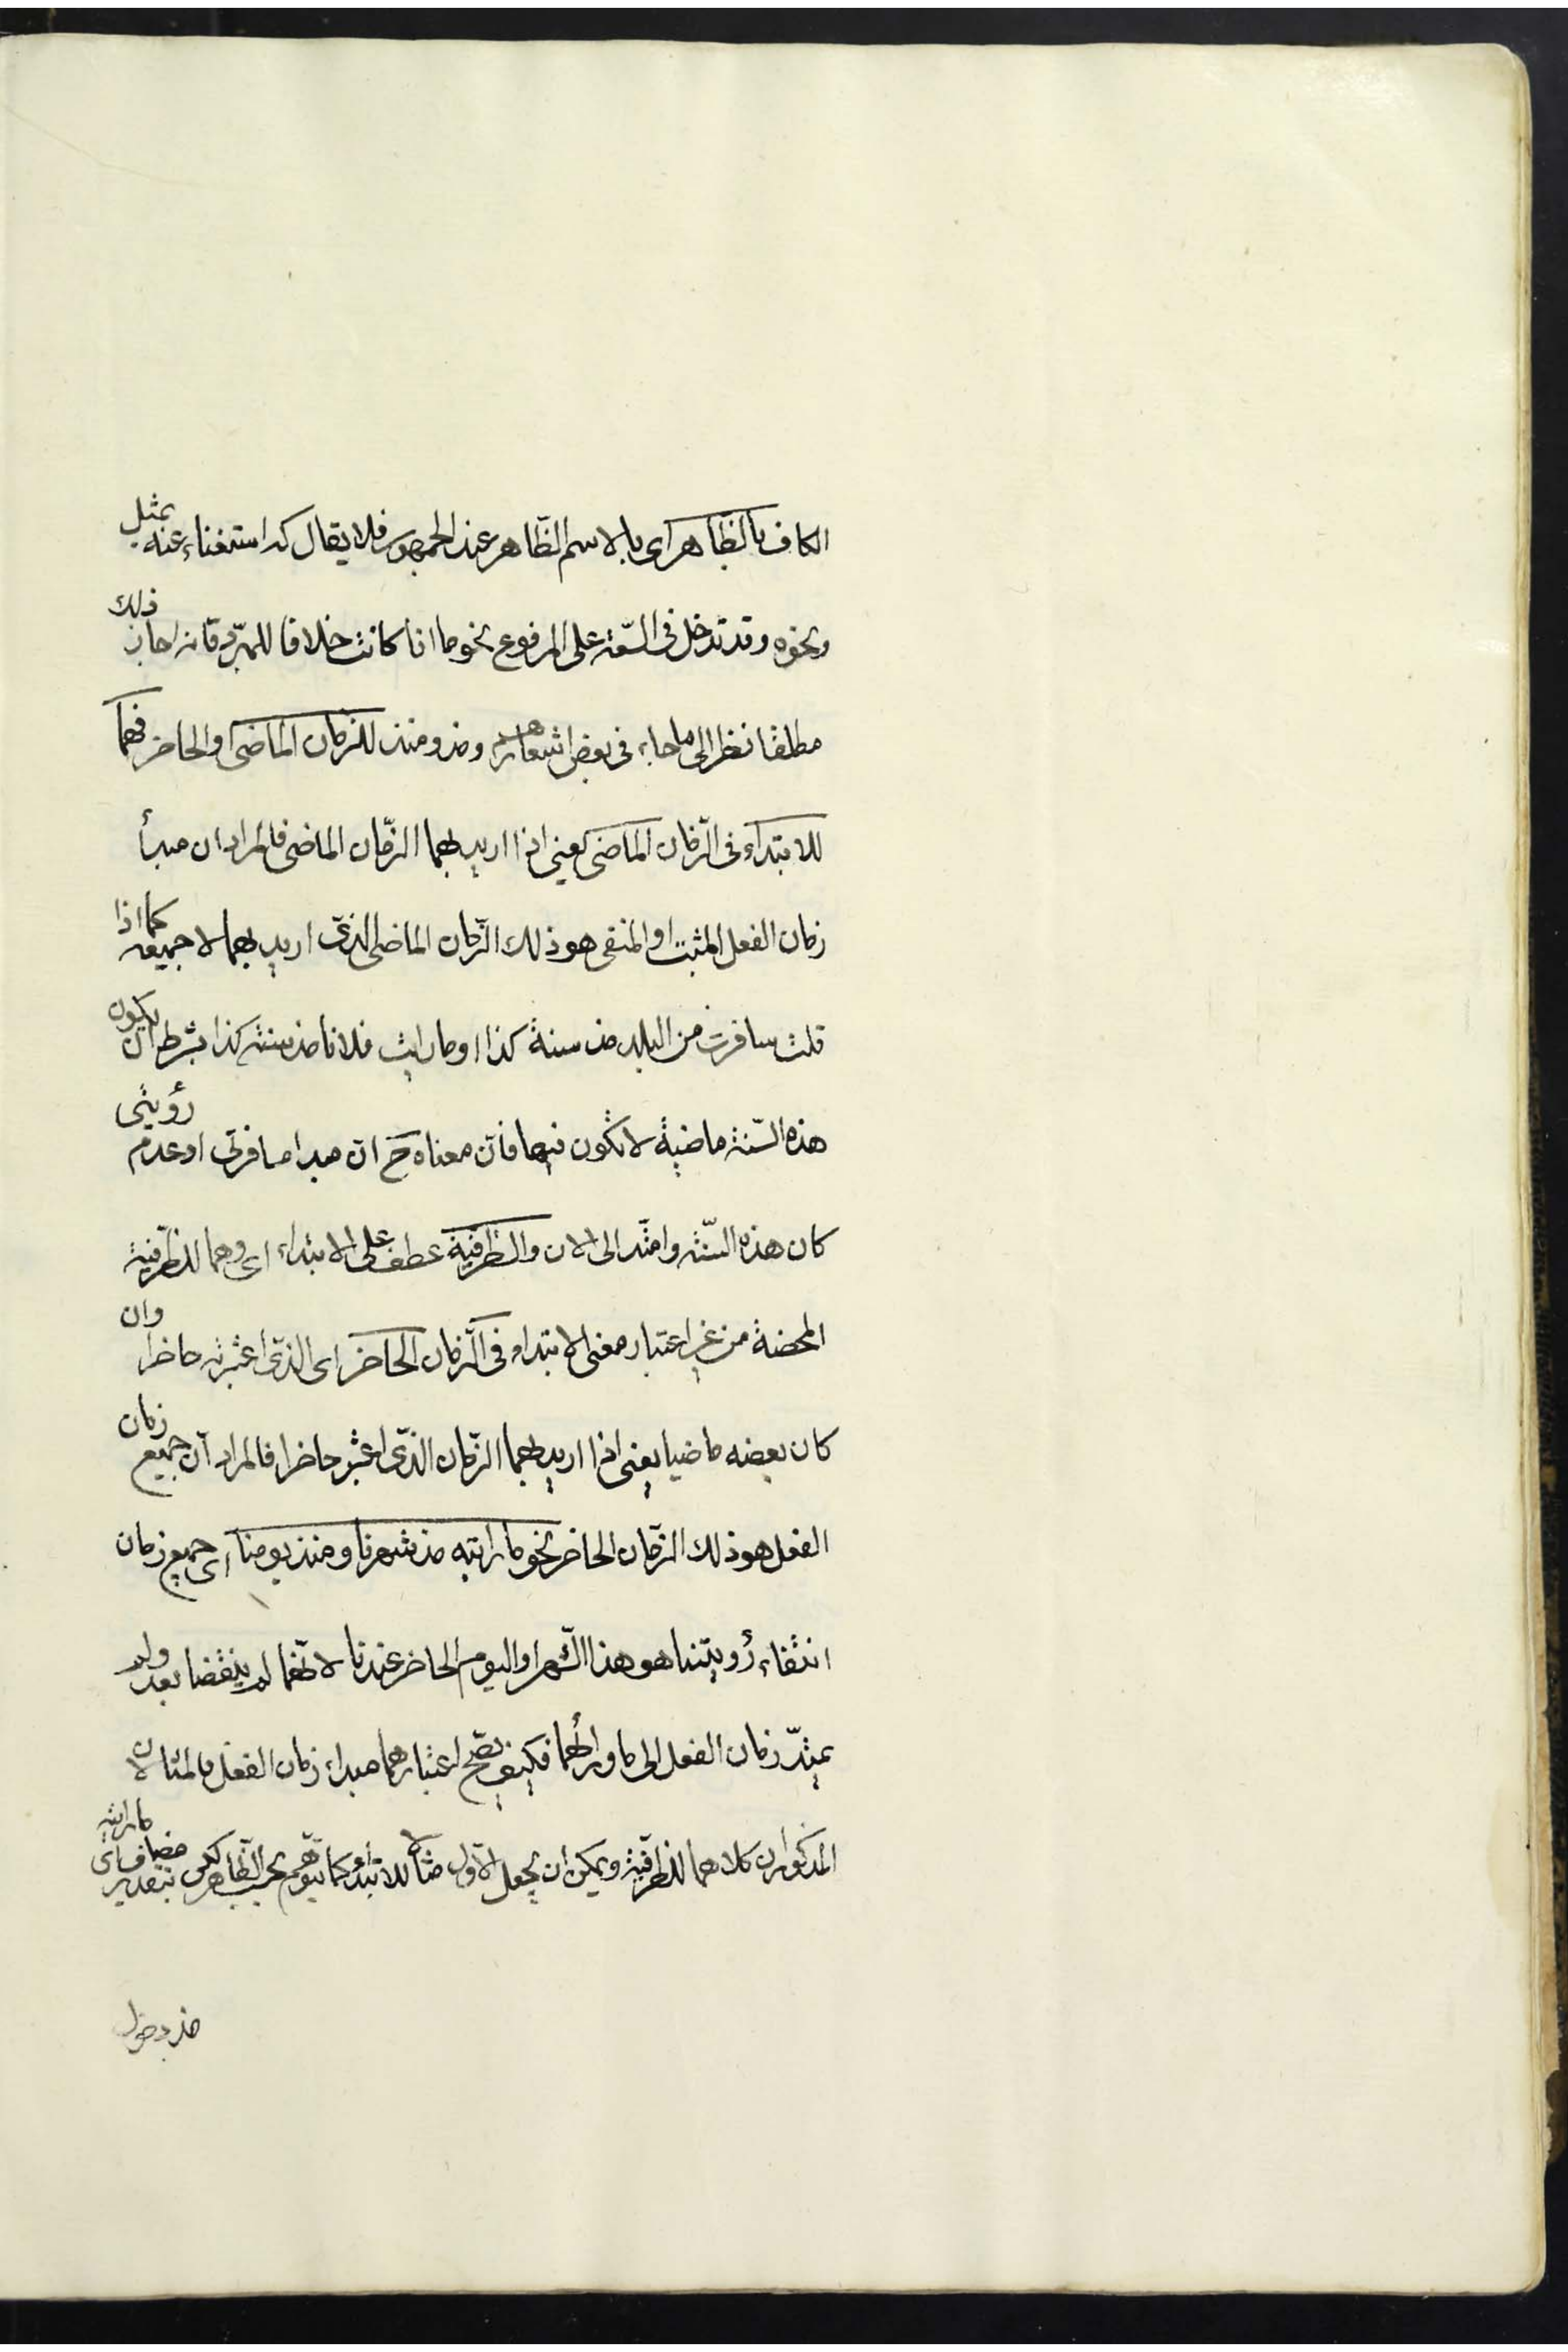 الكاف بالظّاهر اى بالاسم الظّاهر عند الجمهور فلا يقال كه استغناء عنه بمثل
ونحوه وقد تدخل فى السّعة على المرفوع نحو ما انا كانت خلافا للمبرّد فانه اجاز ذلك
مطلقا نظرا الى ما جاء فى بعض اشعارهم ومذ ومنذ للزمان الماضى او الحاضر فهما
للابتداء فى الزّمان الماضى يعنى اذا اريد بهما الزّمان الماضى فالمراد ان مبدأ
زمان الفعل المثبت او المنفى هو ذلك الزّمان الماضى الذى اريد بهما لا جميعه كما اذا
قلت سافرت من البلد مذ سنة كذا او ما رايت فلانا مذ سنة كذا بشرط ان يكون
هذه السّنة ماضية لا تكون فيها فانّ معناه ح انّ مبدا مسافرتى او عدم رؤيتى
كان هذه السّنة وامتدّ الى الان والظرفيّة عطف على الابتداء اى وهما للظرفيّة
المحضة من غير اعتبار معنى الابتداء فى الزّمان الحاضر اى الذى اعتبرته حاضرا وان
كان بعضه ماضيا يعنى اذا اريد بهما الزّمان الذى اعتبر حاضرا فالمراد انّ جميع زمان
الفعل هو ذلك الزّمان الحاضر نحو ما رايته مذ شهرنا ومنذ يومنا اى جميع زمان
انتفاء رؤيتنا هو هذا الشّهر او اليوم الحاضر عندنا لانّهما لم ينقضا بعد ولم
يمتدّ زمان الفعل الى ما ورائهما فكيف يصحّ اعتبارهما مبداء زمان الفعل فالمثالان
المذكوران كلاهما للظرفيّة ويمكن ان يجعل الاوّل مثالا للابتداء كما يتوهّم بحسب الظّاهر لكن بتقدير مضاف اى ما رايته
مذ دخول